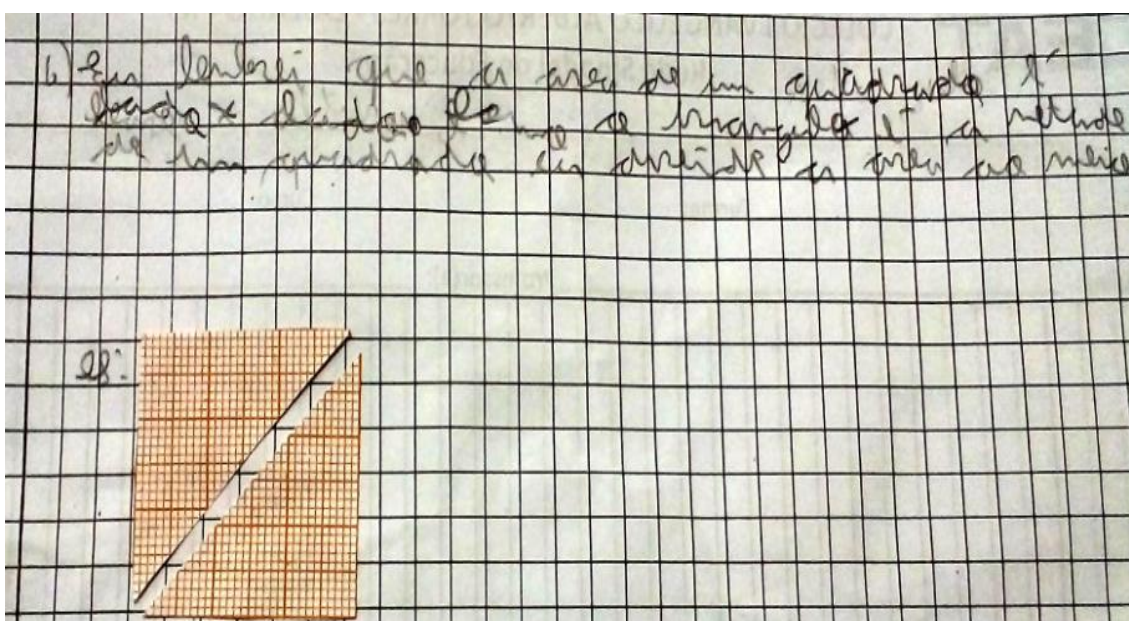 b) Eu lembrei que a area de um quadrado é
lado x lado e como o triangulo é a metade
de um quadrado eu dividi a area ao meio
ex: